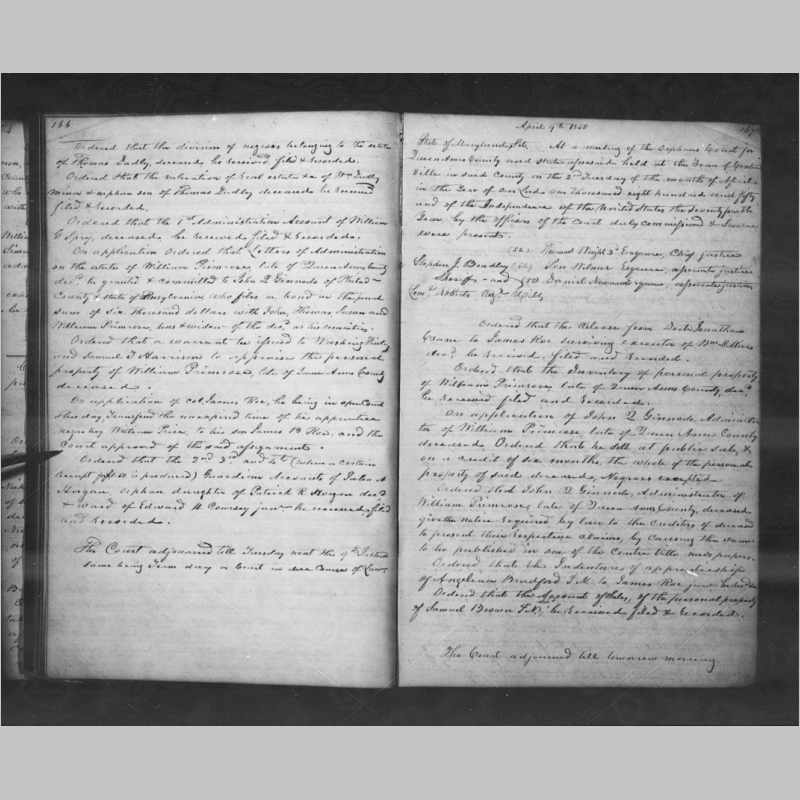 166
Ordered that the division of negroes belonging to the estate
of Thomas Dudly, deceased be received filed & recorded.
Ordered that the valuation of real estate &c of Wm Dudly
minor & orphan son of Thomas Dudly deceased be received
filed & recorded.
Ordered that the 1st Administration Account of William
G. Spry, deceased be received, filed & recorded.
On application Ordered that Letters of Administration
on the estate of William Primrose, late of Queen Anns County
decd. be granted & committed to John Q Ginnodo of Philad
County & State of Pensylvania who files a bond in the penal
sum of six thousand dollars with John, Thomas, Susan and
William Primrose, was & widow of the decd as his securities.
Ordered that a warrant be issued to Washing
and Samuel T Harrison to appraise the personal
property of William Primrose, late of Queen Anns County
deceased.
On application of Col. James Roe, he being in open Court
this day transferred the unexpired time of his apprentice
negro boy Watson Price, to his son James B Roe, and the
Court approved of the said assignment.
Ordered that the 2nd 3rd and 4th (when a certain
receipt is produced) Guardian Accounts of A
Hogan, orphan daughter of Patrick R Hogan decd
& ward of Edward H Coursey junr be received filed
and recorded.
The Court adjourned till Tuesday next the 9th Instant
same being Term day a Court in due Course of Law
April 9th 1850
167
State of Maryland, Sct. At a meeting of the Orphans Court for
Queen Anns County and State aforesaid held at the Town of Centre
Ville in said County on the 2nd Tuesday of the month of April
in the Year of our Lord one thousand eight hundred and fifty
and of the Independence of the United States the seventy fourth
Year, by the officers of the Court duly commissioned & sworn
were present.
Wright 3d Esquire, Chief justice
Stephen J. Bradley Esquire, associate justice
Sheriff - and Daniel Newnam Esquire, associate justice
Roberts Regr
Ordered that the Release from Doct. Jonathan
to James Roe surviving executor of Wm
decd be received, filed and recorded.
Ordered that the Inventory of personal property
of William Primrose, late of Queen Anns County, decd.
be received filed and recorded.
On application of John Q Ginnodo, Administra
tor of William Primrose, late of Queen Anns County
deceased, Ordered that he sell at public sale, &
on a credit of six months, the whole of the personal
property of said deceased, Negroes excepted.
Ordered that John Q Ginnodo, Administrator of
William Primrose, late of Queen Anns County, deceased
give the notice required by law to the creditors of deceased
to present their respective claims, by causing the same
to be published in one of the Centre Ville newspapers.
Ordered, that the Indentures of apprenticeship
of Angelina Bradford F.N. to James Roe, junr be
Ordered that the Account of Sales, of the personal property
of Samuel Brown F.N. be received filed & recorded.
The Court adjourned till tomorrow morning